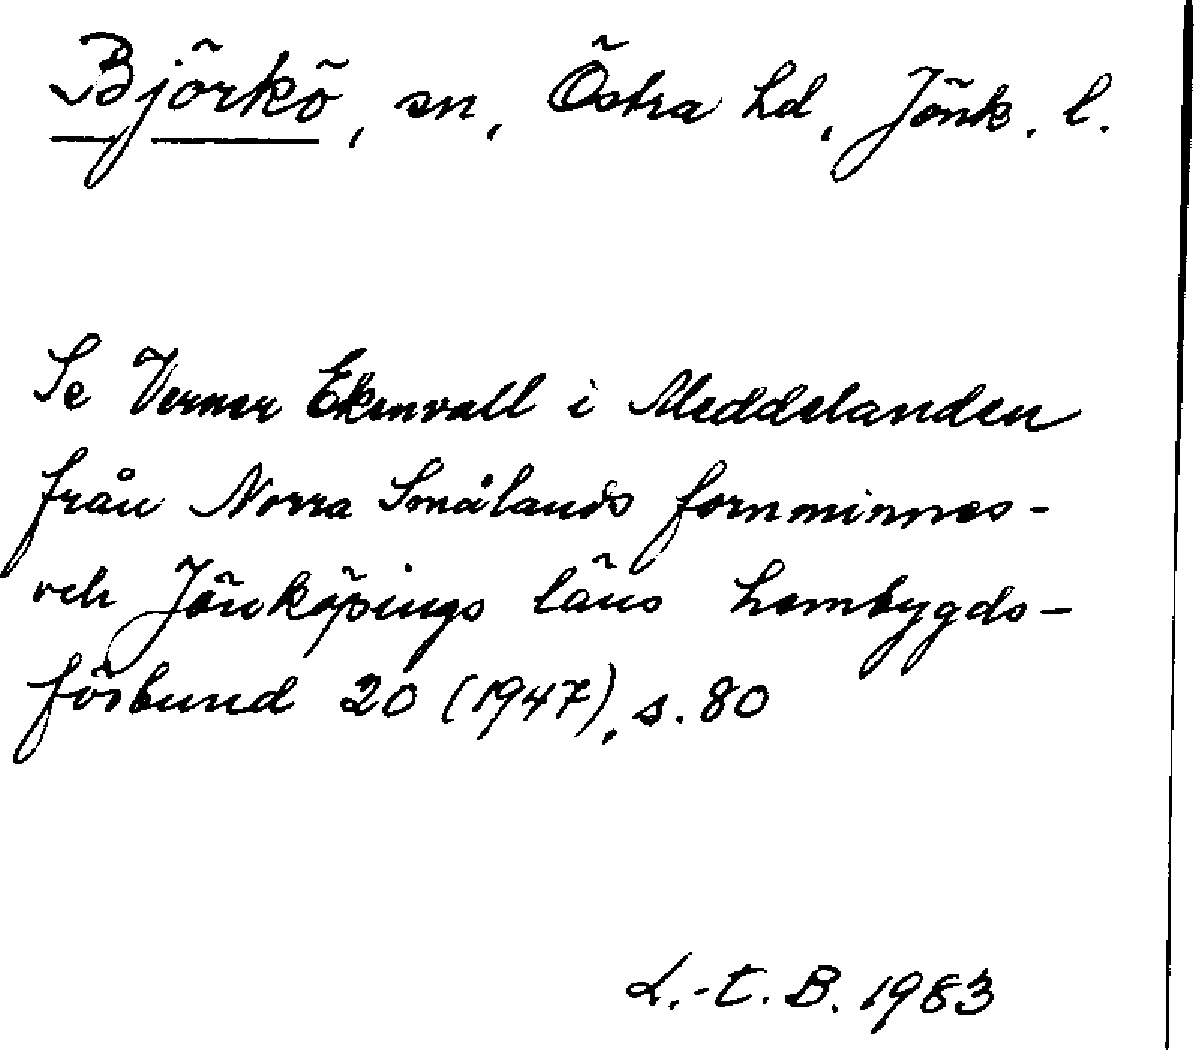 Björkö, sn, Östra hd, Jönk. l.
Se Verner Ekenvall i Meddelanden
från Norra Smålands fornminnes-
och Jönköpings läns hembygds-
förbund 20 (1947), s. 80
L.-C. B. 1983